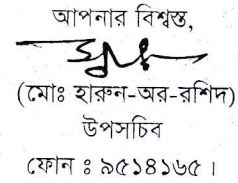 আপনার বিশ্বস্ত,
(মোঃ হারুন-অর-রশিদ)
উপসচিব
ফোন ঃ ৯৫১৪১৬৫।